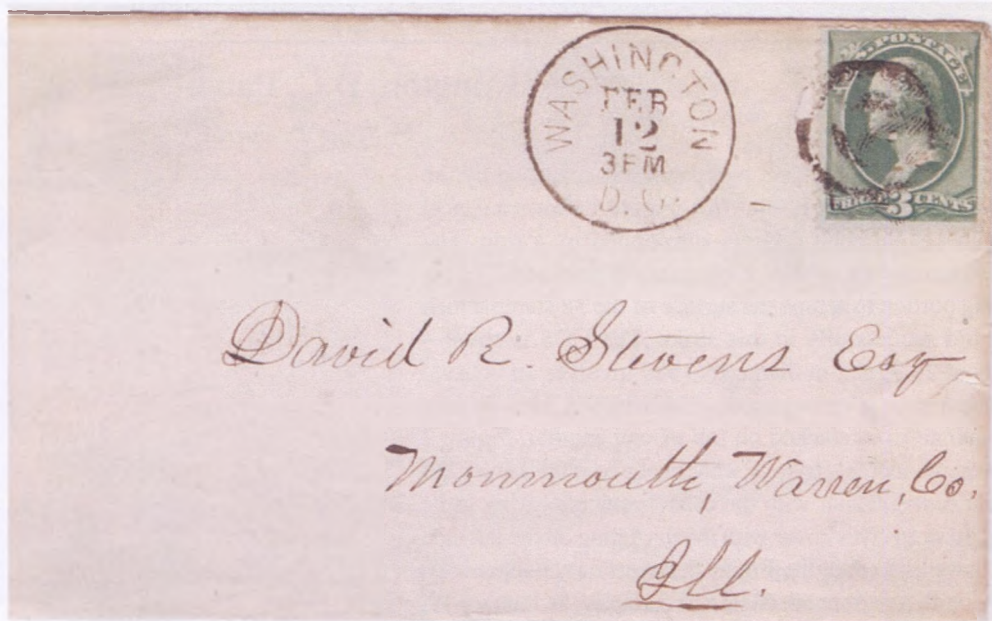 WASHINGTON
FEB
12
3PM
D.C.
U.S. POSTAGE
THREE 3 CENTS
David R. Stevens Esq
Monmouth, Warren, Co.
Ill.